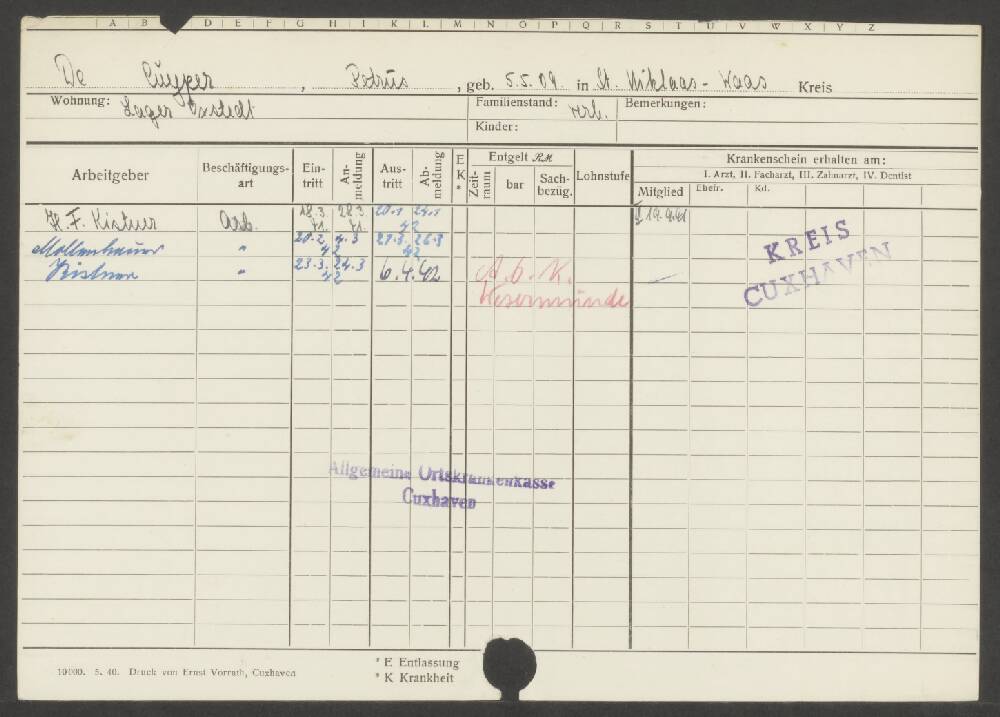 A B D E F G H I K L M N O P Q R S T U V W X Y Z
De Cuyper, Petrus, geb. 5.5.09. in St. Niklaas-Waas Kreis
Wohnung: Lager Oxstedt Familienstand: verh. Bemerkungen:
Kinder:
Arbeitgeber Beschäftigungsart Eintritt Anmeldung Austritt Abmeldung E K * Entgelt RM Zeitraum bar Sachbezüg. Lohnstufe Krankenschein erhalten am:
I. Arzt, II. Facharzt, III. Zahnarzt, IV. Dentist
Mitglied Ehefr. Kd.
H. F. Kistner Arb. 18.3. 41. 28.3. 41. 20.1 42 24.1 I 19.9.41
Mollenhauer " 20.2. 42 4.3 21.3. 42 26.3
Kistner " 23.3. 42 24.3 6.4.42 A.O.K.
Wesermünde
KREIS
CUXHAVEN
Allgemeine Ortskrankenkasse
Cuxhaven
10000. 5. 40. Druck von Ernst Vorrath, Cuxhaven
* E Entlassung
* K Krankheit